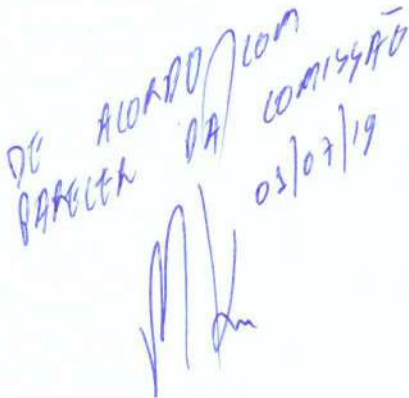 DE ACORDO COM
PARECER DA COMISSÃO
03/07/19